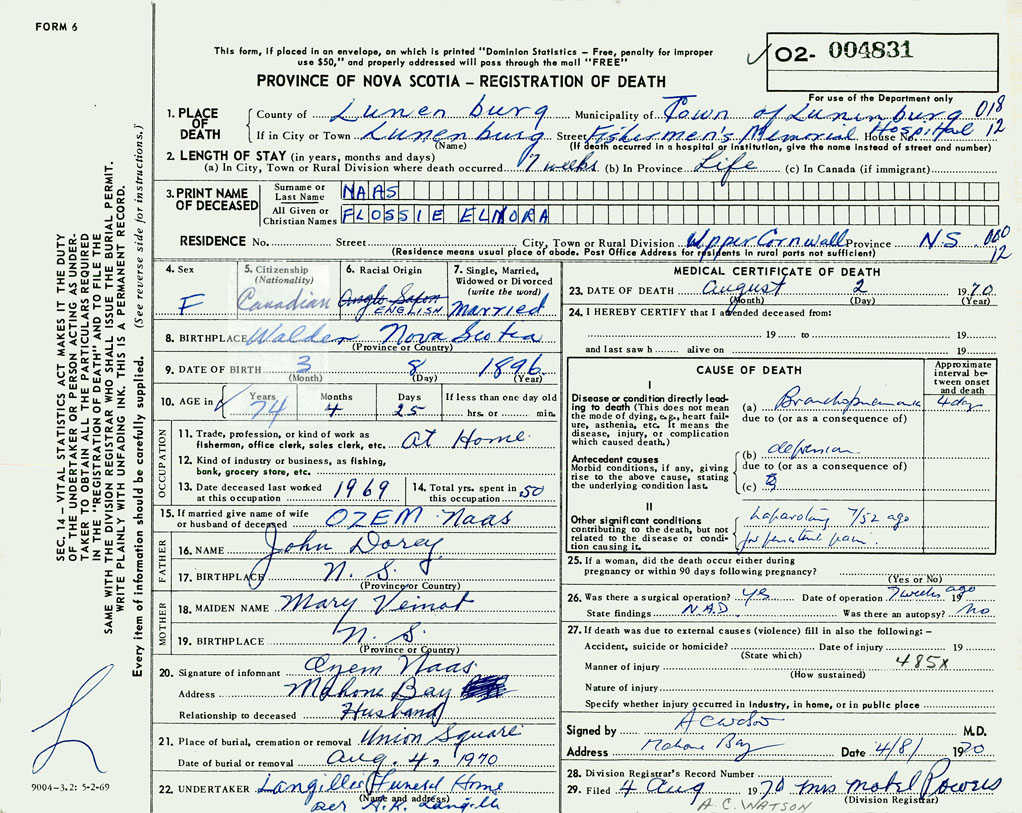 FORM 6
This form, if placed in an envelope, on which is printed "Dominion Statistics – Free, penalty for improper
use $50," and properly addressed will pass through the mail "FREE"
02- 004831
PROVINCE OF NOVA SCOTIA – REGISTRATION OF DEATH
For use of the Department only
1. PLACE OF DEATH County of Lunenburg Municipality of Town of Lunenburg 018
If in City or Town Lunenburg Street Fishermen's Memorial House No. Hospital 12
(Name) (If death occurred in a hospital or institution, give the name instead of street and number)
2. LENGTH OF STAY (in years, months and days)
(a) In City, Town or Rural Division where death occurred 7 weeks (b) In Province Life (c) In Canada (if immigrant)
3. PRINT NAME OF DECEASED Surname or Last Name NAAS
All Given or Christian Names FLOSSIE ELNORA
RESIDENCE No. Street City, Town or Rural Division Upper Cornwall Province N.S. 000
12
(Residence means usual place of abode. Post Office Address for residents in rural parts not sufficient)
4. Sex F
5. Citizenship (Nationality) Canadian
6. Racial Origin Anglo Saxon ENGLISH
7. Single, Married, Widowed or Divorced (write the word) Married
8. BIRTHPLACE Walden Nova Scotia
(Province or Country)
9. DATE OF BIRTH 3 8 1896
(Month) (Day) (Year)
10. AGE in Years 74 Months 4 Days 25 If less than one day old hrs. or min.
OCCUPATION
11. Trade, profession, or kind of work as fisherman, office clerk, sales clerk, etc. at Home
12. Kind of industry or business, as fishing, bank, grocery store, etc.
13. Date deceased last worked at this occupation 1969
14. Total yrs. spent in this occupation 50
15. If married give name of wife or husband of deceased OZEM Naas
FATHER
16. NAME John Dorey
17. BIRTHPLACE N. S.
(Province or Country)
MOTHER
18. MAIDEN NAME Mary Veinot
19. BIRTHPLACE N. S.
(Province or Country)
20. Signature of informant Ozem Naas
Address Mahone Bay
Relationship to deceased Husband
21. Place of burial, cremation or removal Union Square
Date of burial or removal Aug. 4, 1970
22. UNDERTAKER Langilles Funeral Home
(Name and address)
per H.K. Langille
MEDICAL CERTIFICATE OF DEATH
23. DATE OF DEATH August 2 1970
(Month) (Day) (Year)
24. I HEREBY CERTIFY that I attended deceased from:
19 to 19
and last saw h alive on 19
CAUSE OF DEATH
Approximate interval between onset and death
I
Disease or condition directly leading to death (This does not mean the mode of dying, e.g., heart failure, asthenia, etc. It means the disease, injury, or complication which caused death.)
(a) Bronchopneumonia 4 days
due to (or as a consequence of)
Antecedent causes
Morbid conditions, if any, giving rise to the above cause, stating the underlying condition last.
(b) depression
due to (or as a consequence of)
(c)
II
Other significant conditions contributing to the death, but not related to the disease or condition causing it.
Laparotomy 7/52 ago
for persistent pain.
25. If a woman, did the death occur either during pregnancy or within 90 days following pregnancy?
(Yes or No)
26. Was there a surgical operation? yes Date of operation 7 weeks ago 19
State findings N.A.D Was there an autopsy? No
27. If death was due to external causes (violence) fill in also the following: –
Accident, suicide or homicide? Date of injury 19
(State which)
Manner of injury 485X
(How sustained)
Nature of injury
Specify whether injury occurred in Industry, in home, or in public place
Signed by A C Watson M.D.
Address Mahone Bay Date 4/8/ 1970
28. Division Registrar's Record Number
29. Filed 4 Aug 1970 Mrs Mabel Powers
(Division Registrar)
A.C. WATSON
SEC. 14 – VITAL STATISTICS ACT MAKES IT THE DUTY
OF THE UNDERTAKER OR PERSON ACTING AS UNDER-
TAKER TO OBTAIN ALL THE PARTICULARS REQUIRED
IN THE "REGISTRATION OF DEATH" AND TO FILE THE
SAME WITH THE DIVISION REGISTRAR WHO SHALL ISSUE THE BURIAL PERMIT.
WRITE PLAINLY WITH UNFADING INK. THIS IS A PERMANENT RECORD.
Every item of information should be carefully supplied. (See reverse side for instructions.)
9004-3.2: 5-2-69